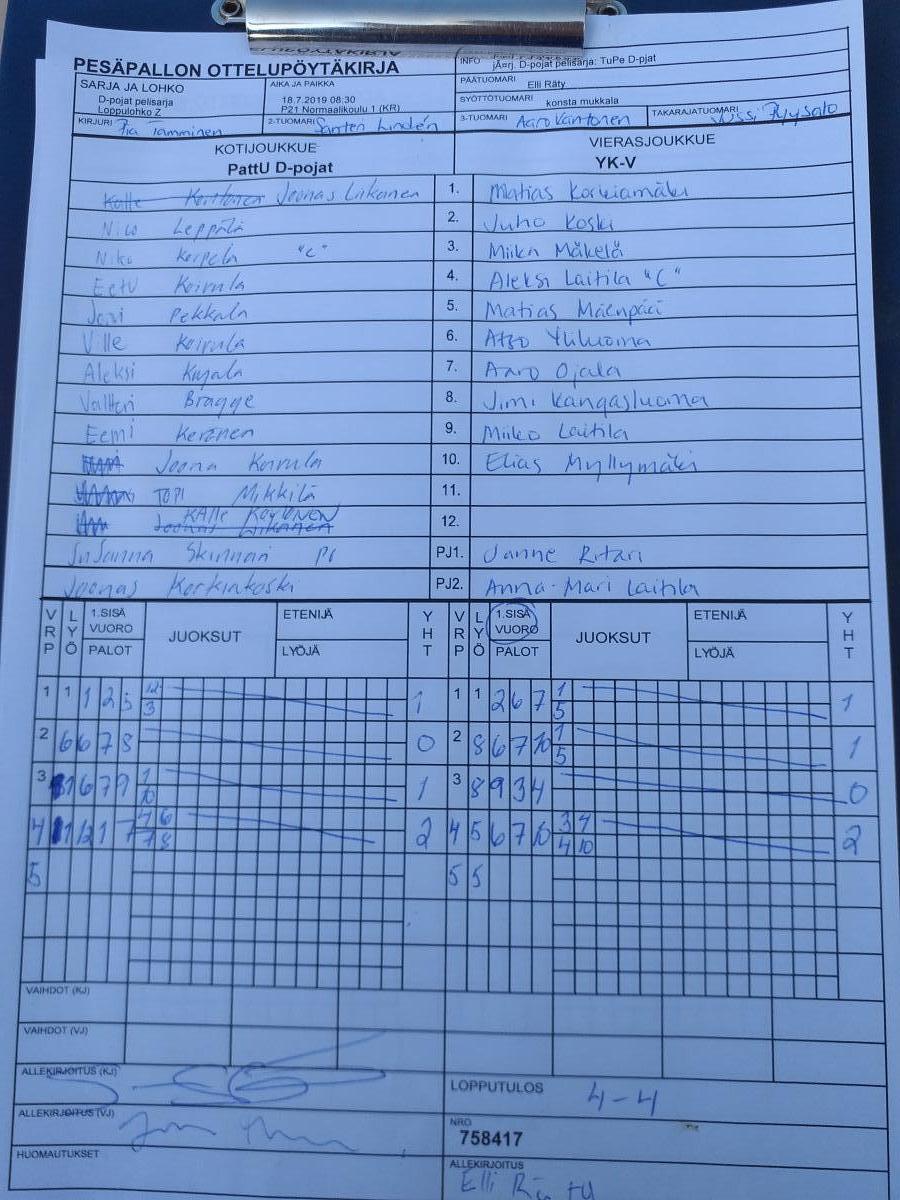 PESÄPALLON OTTELUPÖYTÄKIRJA
INFO jÃ¤rj. D-pojat pelisarja: TuPe D-pjat
SARJA JA LOHKO
D-pojat pelisarja
Loppulohko Z
AIKA JA PAIKKA
18.7.2019 08:30
P21 Normaalikoulu 1 (KR)
PÄÄTUOMARI Elli Räty
SYÖTTÖTUOMARI konsta mukkala
KIRJURI Pia Tamminen
2-TUOMARI Santeri Lindén
3-TUOMARI Aaro Vantonen
TAKARAJATUOMARI Jussi Pyysalo
KOTIJOUKKUE
PattU D-pojat
VIERASJOUKKUE
YK-V
Kalle Joonas Liikanen 1. Matias Korkiamäki
Nico Leppälä 2. Juho Koski
Niko Korpela "C" 3. Miika Mäkelä
Eetu Koivula 4. Aleksi Laitila "C"
Joni Pekkala 5. Matias Mäenpää
Ville Koivula 6. Atso Yliluoma
Aleksi Kujala 7. Aaro Ojala
Valtteri Bragge 8. Jimi Kangasluoma
Eemi Keränen 9. Miiko Laitila
Joona Koivula 10. Elias Myllymäki
TOPI Mikkilä 11.
KALLE 12.
Joonas Liikanen
Susanna Skinnari PJ1. Janne Ritari
Joonas Korkiakoski PJ2. Anna-Mari Laitila
VRP LYÖ 1.SISÄ VUORO PALOT JUOKSUT ETENIJÄ LYÖJÄ YHT VRP LYÖ 1.SISÄ VUORO PALOT JUOKSUT ETENIJÄ LYÖJÄ YHT
1 1 1 2 5 12 3 1 1 1 2 6 7 1 5 1
2 6 6 7 8 0 2 8 6 7 10 1 5 1
3 1 6 7 9 1 10 1 3 8 9 3 4 0
4 11 12 1 7 4 6 7 8 2 4 5 6 7 10 3 4 4 10 2
5 5 5
VAIHDOT (KJ)
VAIHDOT (VJ)
ALLEKIRJOITUS (KJ)
LOPPUTULOS 4-4
ALLEKIRJOITUS (VJ)
NRO
758417
HUOMAUTUKSET
ALLEKIRJOITUS
Elli